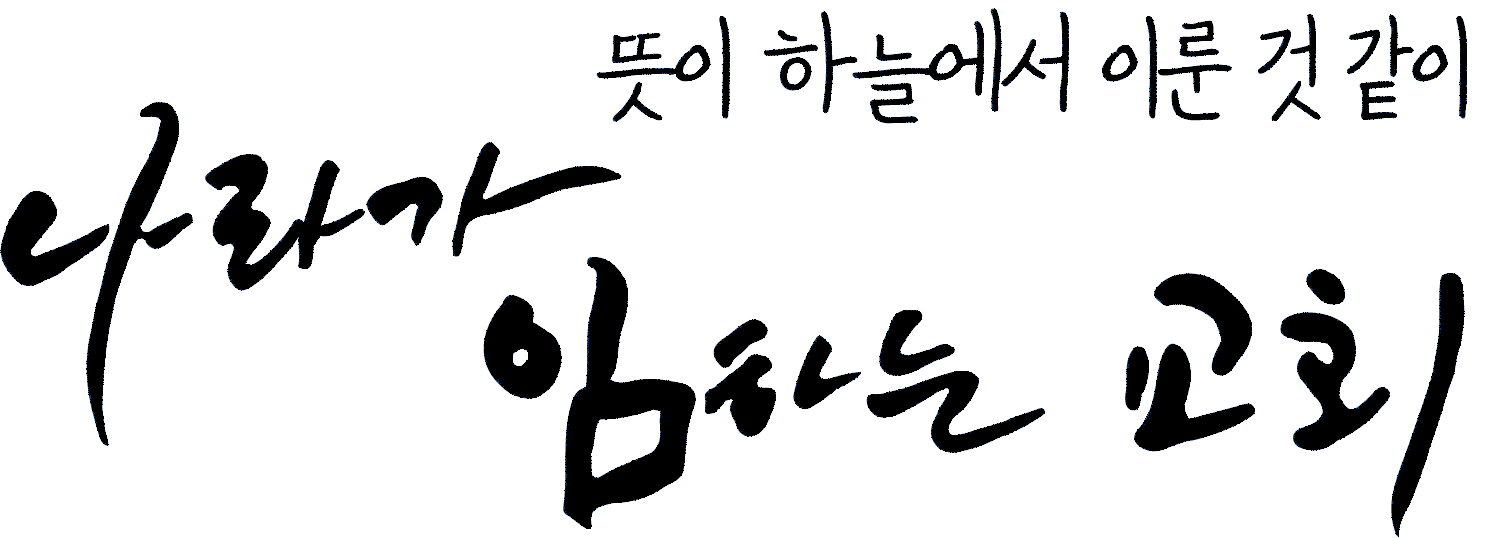 뜻이 하늘에서 이룬 것 같이
나라가
임하는 교회